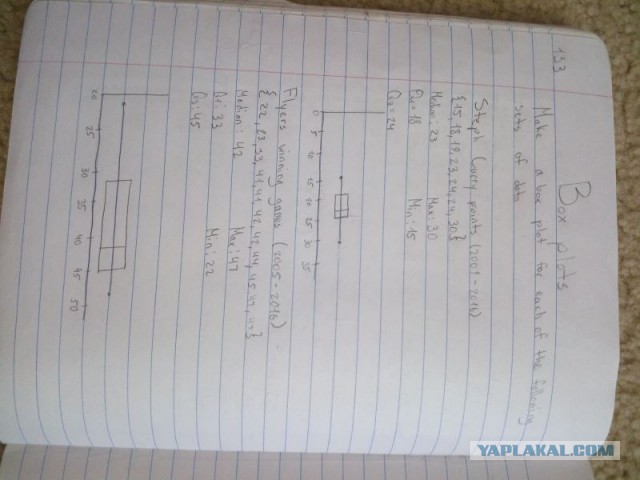 133
Box plots
Make a box plot for each of the following
sets of data
Steph Curry points (2009-2016)
{15, 18, 19, 23, 24, 24, 30}
Median: 23 Max: 30
Q1: 18 Min: 15
Q3: 24
0 5 10 15 20 25 30 35
Flyers winning games (2005-2016)
{22, 33, 41, 41, 42, 42, 44, 45, 47, 47}
Median: 42 Max: 47
Q1: 33 Min: 22
Q3: 45
20 25 30 35 40 45 50
YAPLAKAL.COM